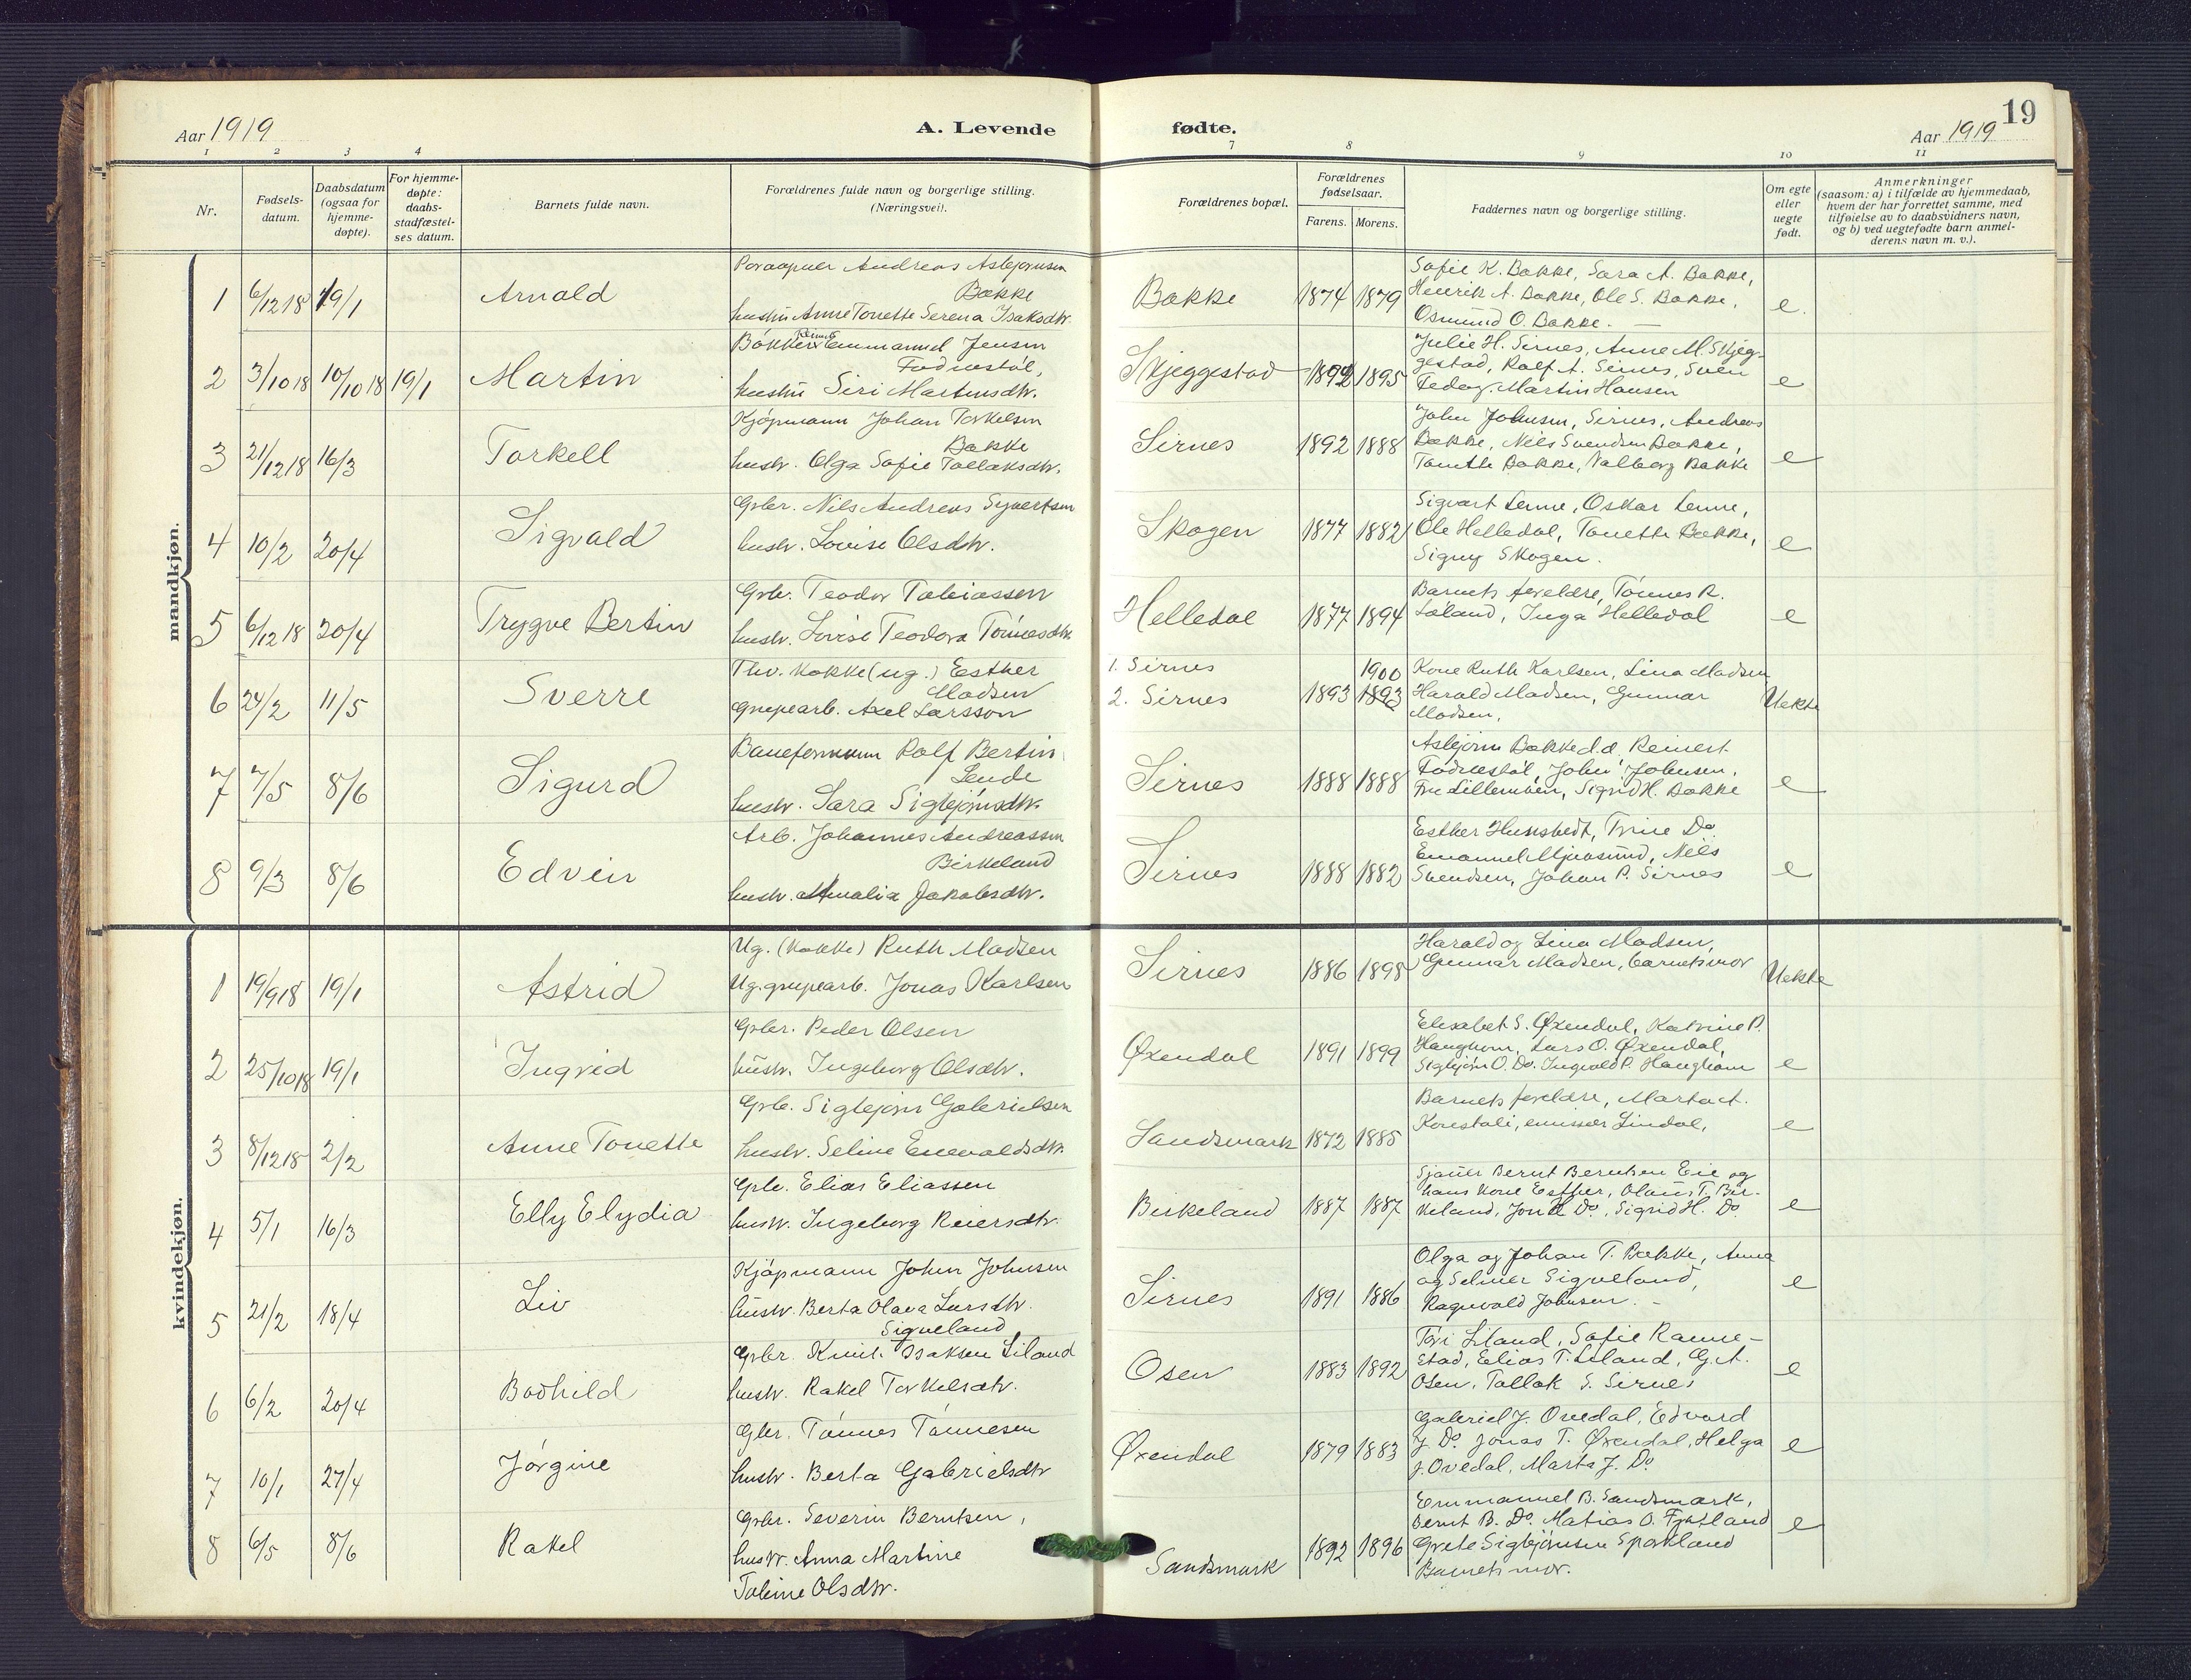 Aar 1919
A. Levende
fødte.
19
Aar 1919
1 2 3 4 7 8 9 10 11
Nr.
Fødsels-
datum.
Daabsdatum
(ogsaa for
hjemme-
døpte).
For hjemme-
døpte:
daabs-
stadfæstel-
ses datum.
Barnets fulde navn.
Forældrenes fulde navn og borgerlige stilling.
(Næringsvei).
Forældrenes bopæl.
Forældrenes
fødselsaar.
Farens. Morens.
Faddernes navn og borgerlige stilling.
Om egte
eller
uegte
født.
Anmerkninger
(saasom: a) i tilfælde av hjemmedaab,
hvem der har forrettet samme, med
tilføielse av to daabsvidners navn,
og b) ved uegtefødte barn anmel-
derens navn m. v.).
mandkjøn.
1 6/12 18 19/1 Arnald
Andreas Asbjørnsen
Bakke
hustru Anne Tonette Serena Isaksdtr.
Bakke 1874 1879
Sofie K. Bakke, Sara A. Bakke,
Henrik A. Bakke, Ole S. Bakke,
Osmund O. Bakke. —
e.
2 3/10 18 10/10 18 19/1 Martin
Emmanuel Jensen
Fodnestøl,
hustru Siri Martinsdtr.
Skjeggestad 1892 1895
Julie H. Sirnes, Anne M. Skjeg-
gestad, Ralf A. Sirnes, Sven
Fedog. Martin Hansen
e
3 21/12 18 16/3 Torkell
Kjøpmann Johan Torkelsen
Bakke
hustr. Olga Sofie Tollaksdtr.
Sirnes 1892 1888
John Johnsen, Sirnes, Andreas
Bakke, Nils Svendsen Bakke,
Tonette Bakke, Valborg Bakke
e
4 10/2 20/4 Sigvald
Gbr. Nils Andreas Syvertsen
hustr. Lovise Olsdtr.
Skogen 1877 1882
Sigvart Lenne, Oskar Lenne,
Ole Helledal, Tonette Bakke,
Signy Skogen.
e
5 6/12 18 20/4 Trygve Bertin
Gbr. Teodor Tobiassen
hustr. Lovise Teodora Tønnesdtr.
Helledal 1877 1894
Barnets foreldre, Tønnes R.
Løland, Inga Helledal
e
6 24/2 11/5 Sverre
Thv. kokke (ug.) Esther
Madsen
Grupearb. Axel Larsson
1. Sirnes
2. Sirnes
1900
1893 1893
Kone Ruth Karlsen, Lina Madsen
Harald Madsen, Gunnar
Madsen,
Uekte
7 7/5 8/6 Sigurd
Baneformann Ralf Bertin
Lende
hustr. Sara Sigbjørnsdtr.
Sirnes 1888 1888
Asbjørn Bakke d.æ. Reinert
Fodnestøl, John Johnsen,
Fru Lillemoen, Sigrid H. Bakke
e
8 9/3 8/6 Edvin
Arb. Johannes Andreassen
Birkeland
hustr. Amalia Jakobsdtr.
Sirnes 1888 1882
Esther Hunsbedt, Trine Do.
Emanuel Mjuasund, Nils
Svendsen, Johan P. Sirnes
e
kvindekjøn.
1 19/9 18 19/1 Astrid
Ug. (kokke) Ruth Madsen
Ug. grupearb. Jonas Karlsen
Sirnes 1886 1898
Harald og Lina Madsen,
Gunnar Madsen, barnets mor
Uekte
2 25/10 18 19/1 Ingrid
Gbr. Peder Olsen
hustr. Ingeborg Olsdtr.
Øxendal 1891 1899
Elisabet S. Øxendal, Katrine P.
Haughom, Lars O. Øxendal,
Sigbjørn O. Do. Ingvald P. Haughom
e
3 8/12 18 2/2 Anne Tonette
Gbr. Sigbjørn Gabrielsen
hustr. Seline Enevaldsdtr.
Sandsmark 1872 1885
Barnets foreldre, Marta A.
Konstali, emissær Lindal,
e
4 5/1 16/3 Elly Elydia
Gbr. Elias Eliassen
hustr. Ingeborg Reiersdtr.
Birkeland 1887 1887
Bernt Berntsen Eie og
hans kone Esther, Olaus T. Bir-
keland, Jonie Do., Sigrid H. Do
e
5 21/2 18/4 Liv
Kjøpmann John Johnsen
hustr. Berta Olava Larsdtr.
Sigveland
Sirnes 1891 1886
Olga og Johan T. Bakke, Anna
og Selmer Sigveland,
Ragnvald Johnsen. -
e
6 6/2 20/4 Bodhild
Gbr. Knut Isaksen Liland
hustr. Rakel Torkelsdtr.
Osen 1883 1892
Tori Liland, Sofie Ramse-
stad, Elias T. Liland, G. A.
Osen, Tollak S. Sirnes
e
7 10/1 27/4 Jørgine
Gbr. Tønnes Tønnesen
hustr. Berta Gabrielsdtr
Øxendal 1879 1883
Gabriel J. Ovedal, Edvard
J. Do. Jonas T. Øxendal, Helga
J. Ovedal, Marta J. Do
e
8 6/5 8/6 Rakel
Gbr. Severin Berntsen,
hustr. Anna Martine
Tobine Olsdtr.
Sandsmark 1892 1896
Emmanuel B. Sandsmark,
Bernt B. Do. Matias O. Fjotland
Grete Sigbjørnsen Sporkland
Barnets mor.
e